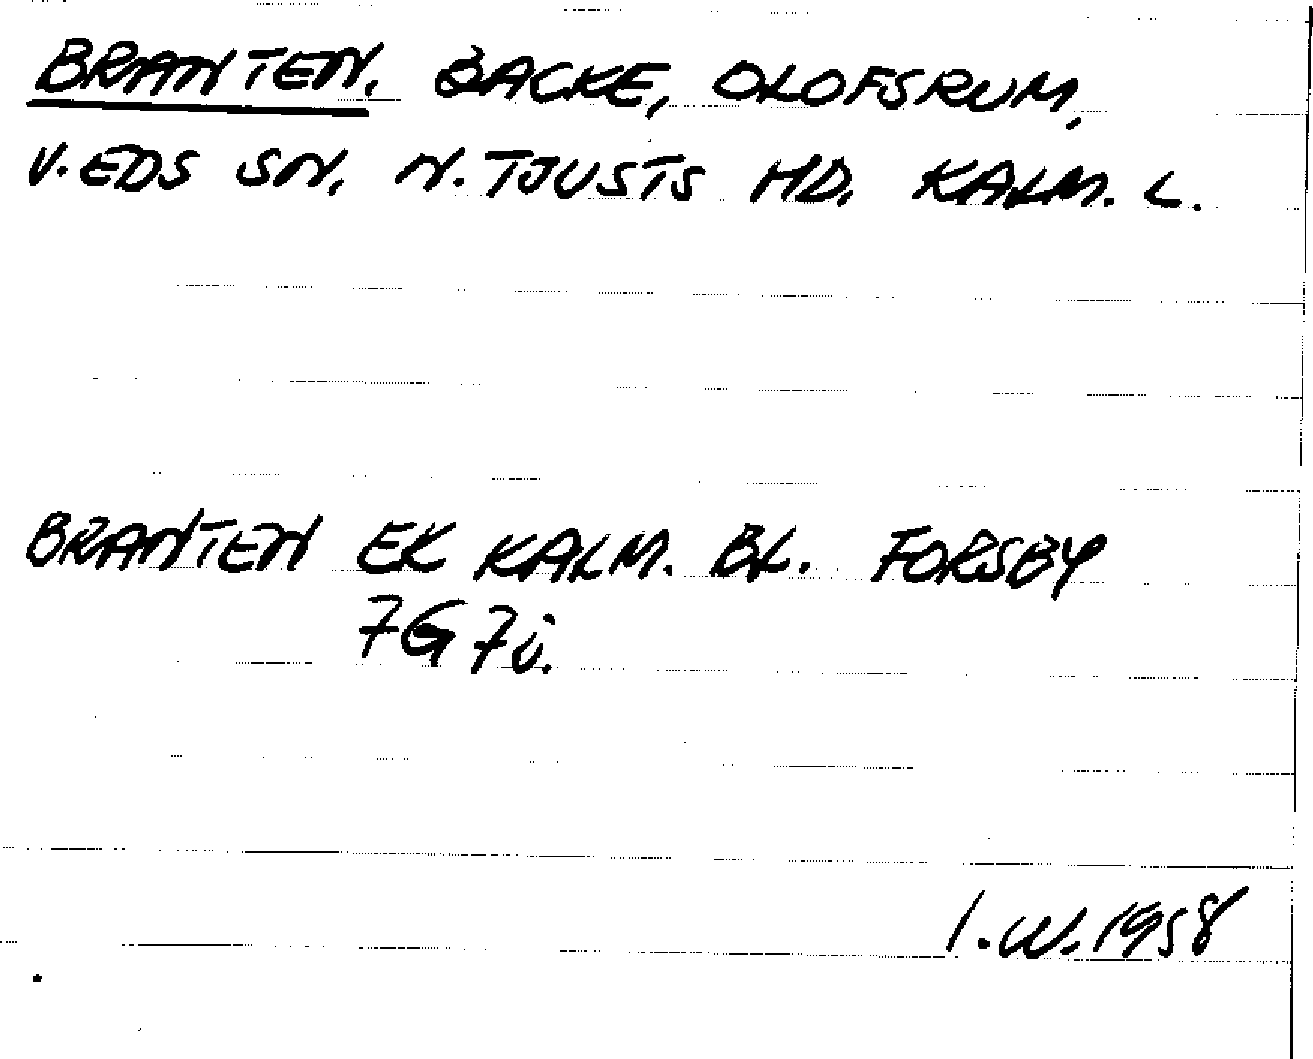 BRANTEN. BACKE, OLOFSRUM,
V. EDS SN. N. TJUSTS HD. KALM. L.
BRANTEN EK KALM. BL. FORSBY
7G 7i.
I.W. 1958